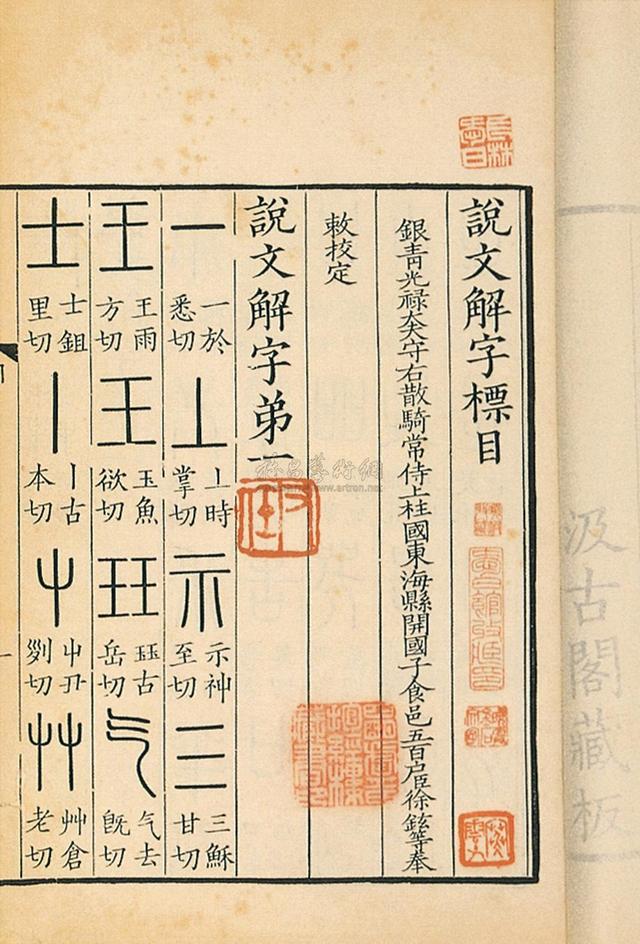 說文解字標目
銀青光祿大夫守右散騎常侍上柱國東海縣開國子食邑五百戶臣徐鉉等奉
敕校定
說文解字弟一
一 一於悉切
丄 丄時掌切
示 示神至切
三 三穌甘切
王 王雨方切
玉 玉魚欲切
玨 玨古岳切
气 气去旣切
士 士鉏里切
丨 丨古本切
屮 屮丑列切
艸 艸倉老切
汲古閣藏板
www.artron.net